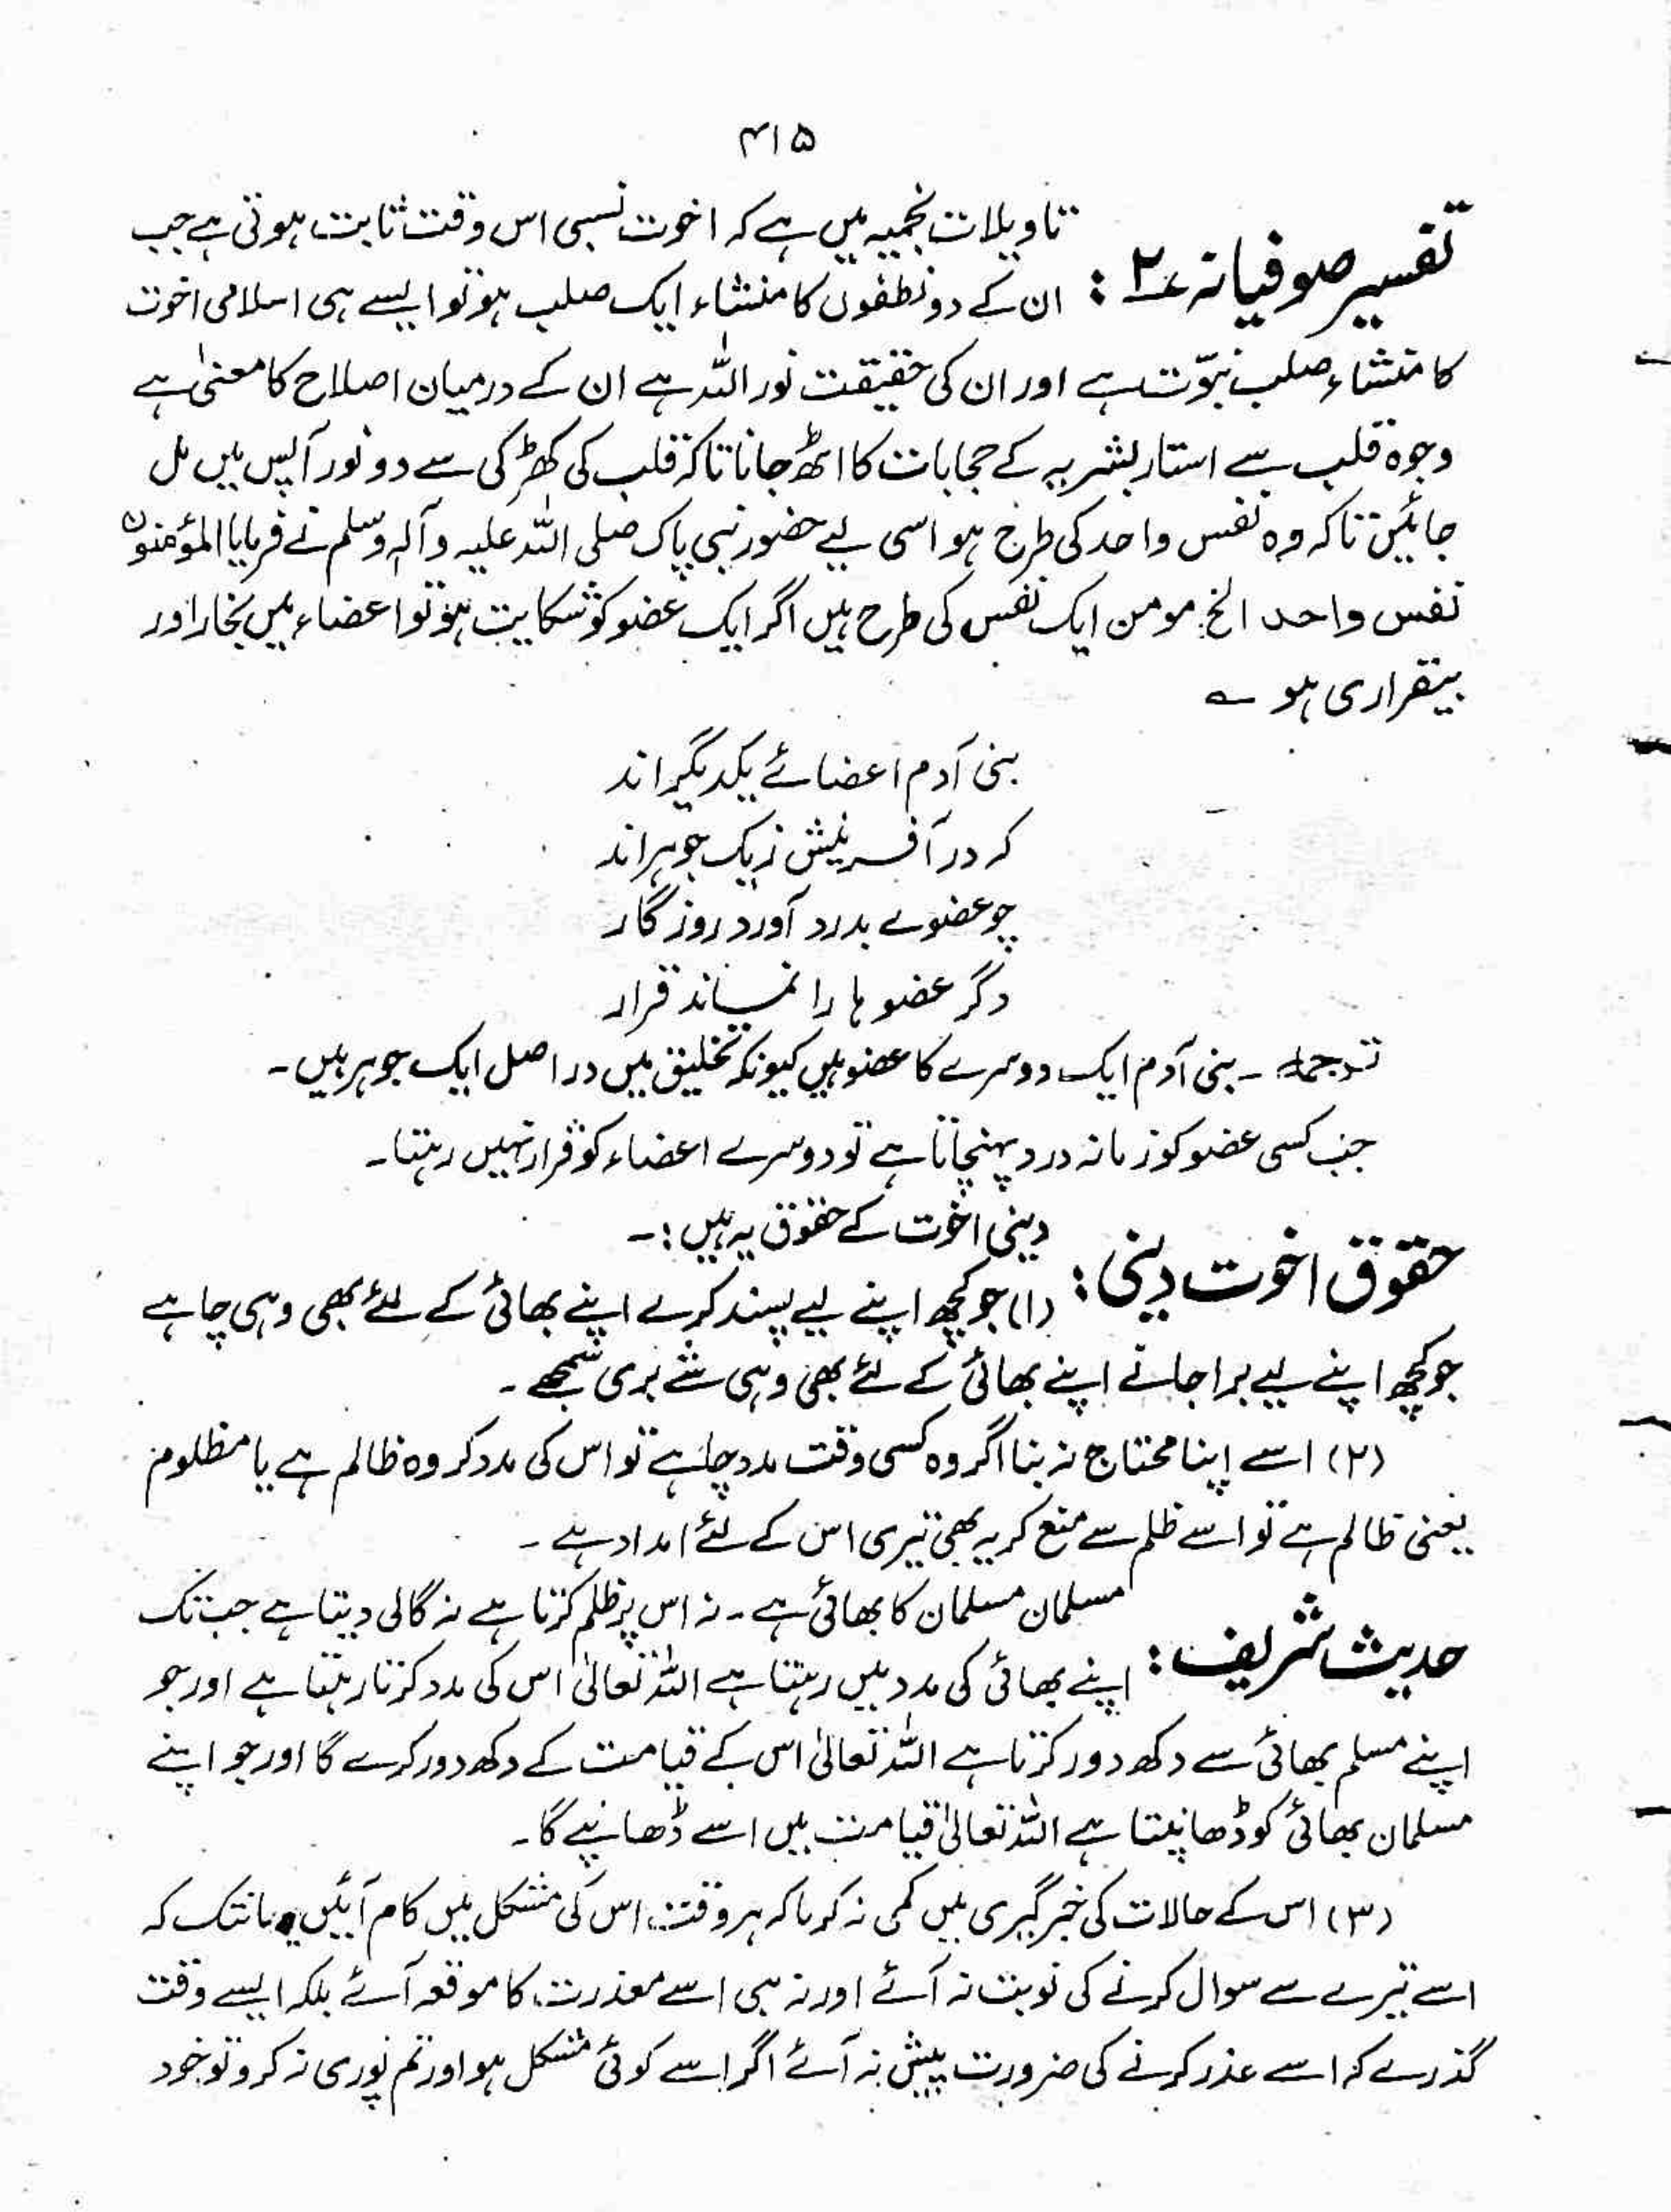 ۴۱۵
تفسیر صوفیانہ ۲ :
تاویلات نجمیہ میں ہے کہ اخوت نسبی اس وقت ثابت ہوتی ہے جب
ان کے دو نطفوں کا منشاء ایک صلب ہو تو ایسے ہی اسلامی اخوت
کا منشاء صلب نبوّت ہے اور ان کی حقیقت نور اللہ ہے ان کے درمیان اصلاح کا معنیٰ ہے
وجوہ قلب سے استار بشریہ کے حجابات کا اٹھ جانا تاکہ قلب کی کھڑکی سے دو نور آپس میں مل
جائیں تاکہ وہ نفس واحد کی طرح ہو اسی لیے حضور نبی پاک صلی اللہ علیہ وآلہ وسلم نے فرمایا المؤمنون
نفس واحد الخ. مومن ایک نفس کی طرح ہیں اگر ایک عضو کو شکایت ہو تو اعضاء میں بخار اور
بیقراری ہو ؎
بنی آدم اعضائے یکدیگر اند
کہ در آفرینش ز یک جوہر اند
چو عضوے بدرد آورد روزگار
دگر عضو ہا را نمساند قرار
ترجمہ ۔ بنی آدم ایک دوسرے کا عضو ہیں کیونکہ تخلیق میں در اصل ایک جوہر ہیں ۔
جب کسی عضو کو زمانہ درد پہنچاتا ہے تو دوسرے اعضاء کو قرار نہیں رہتا ۔
حقوق اخوت دینی :
دینی اخوت کے حقوق یہ ہیں :۔
(۱) جو کچھ اپنے لیے پسند کرے اپنے بھائی کے لئے بھی وہی چاہے
جو کچھ اپنے لیے برا جانے اپنے بھائی کے لئے بھی وہی شے بری سمجھے ۔
(۲) اسے اپنا محتاج نہ بنا اگر وہ کسی وقت مدد چاہے تو اس کی مدد کر وہ ظالم ہے یا مظلوم
یعنی ظالم ہے تو اسے ظلم سے منع کر یہ بھی تیری اس کے لئے امداد ہے ۔
حدیث شریف :
مسلمان مسلمان کا بھائی ہے ۔ نہ اس پر ظلم کرتا ہے نہ گالی دیتا ہے جب تک
اپنے بھائی کی مدد میں رہتا ہے اللہ تعالیٰ اس کی مدد کرتا رہتا ہے اور جو
اپنے مسلم بھائی سے دکھ دور کرتا ہے اللہ تعالیٰ اس کے قیامت کے دکھ دور کرے گا اور جو اپنے
مسلمان بھائی کو ڈھانپتا ہے اللہ تعالیٰ قیامت میں اسے ڈھانپے گا ۔
(۳) اس کے حالات کی خبر گیری میں کمی نہ کر تاکہ ہر وقت اس کی مشکل میں کام آئیں یہانتک کہ
اسے تیرے سے سوال کرنے کی نوبت نہ آئے اور نہ ہی اسے معذرت کا موقعہ آئے بلکہ ایسے وقت
گذرے کہ اسے عذر کرنے کی ضرورت پیش نہ آئے اگر اسے کوئی مشکل ہو اور تم پوری نہ کرو تو خود